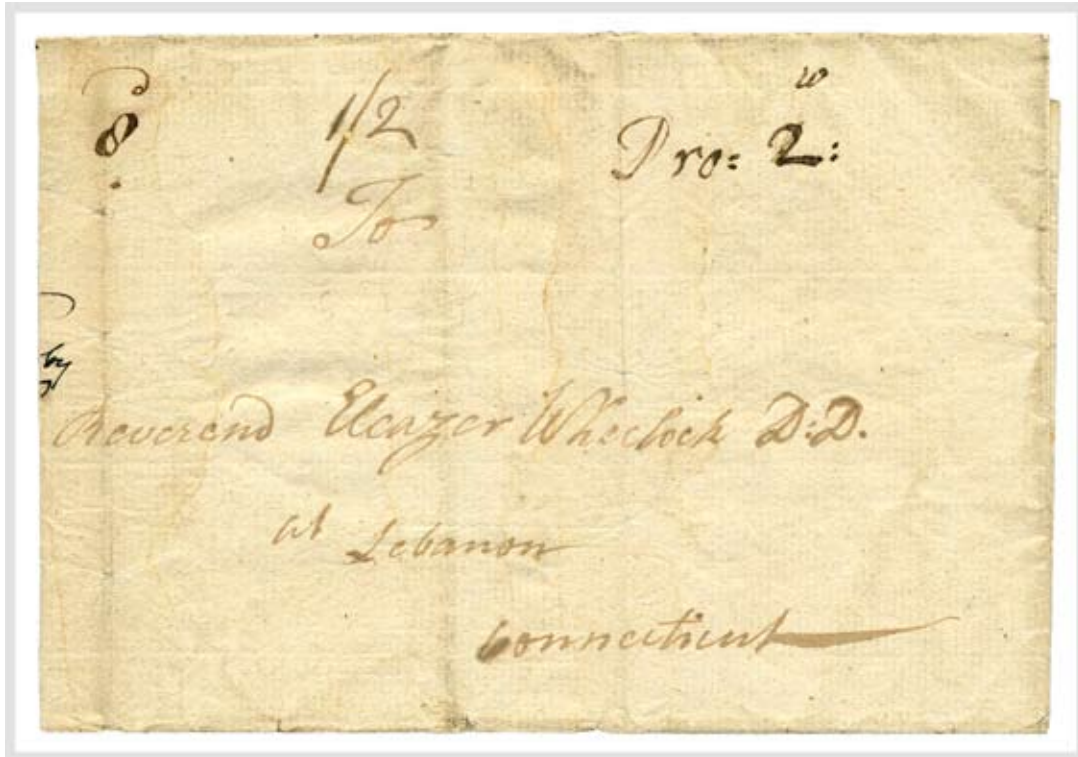 8 1/2 Pro: 2:
To
by
Reverend Eleazer Wheelock D:D.
at Lebanon
Connecticut